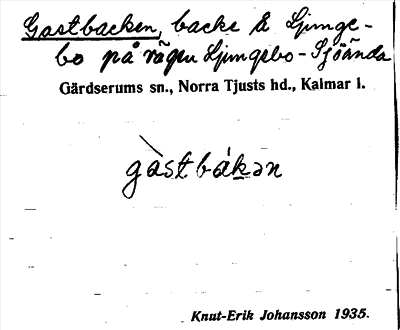 Gastbacken, backe å Ljunge-
bo på vägen Ljungebo - Sjöända
Gärdserums sn., Norra Tjusts hd., Kalmar l.
gàstbákən
Knut-Erik Johansson 1935.